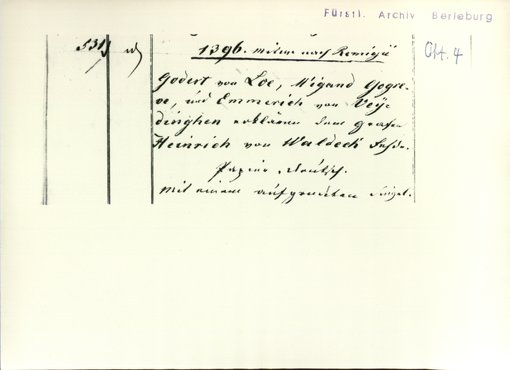 Fürstl. Archiv Berleburg
Okt. 4
531
1396. mitew nach Remigii
Godert von Loe, Wigand Gogre-
ve, und Emmerich von Voÿe
dinghen erklären dem Grafen
Heinrich von Waldeck Fehde.
Papier Deutsch.
Mit einem aufgedrückten Siegel.